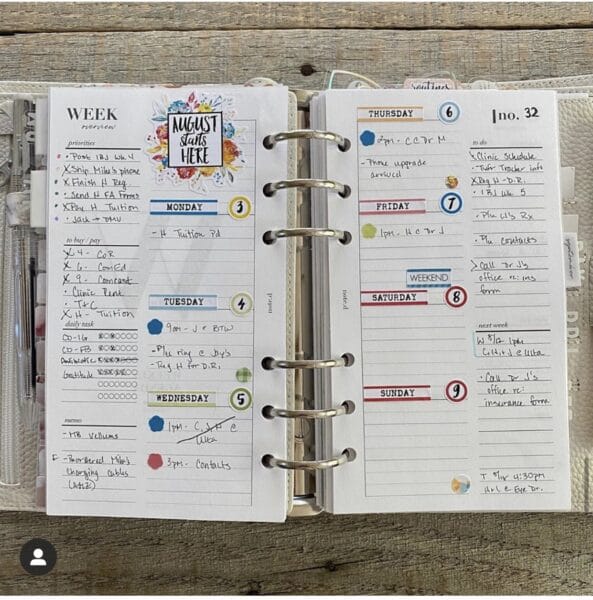 WEEK
overview
priorities
• Post IBJ Wk 4
X Ship Mike's phone
X Finish H Reg.
• Send H FA Forms
X Pay H Tuition
• Jack → DMV
to buy / pay
X 4 - CoR
X 6 - ComEd
X 9 - Comcast
• Clinic Rent
• T+C
X H - Tuition
daily task
CO-1G
CO-FB
Antibiotic
Gratitude
memos
- MB Vellums
- Reordered Mike's
Charging Cables
AUGUST
starts
HERE
MONDAY 3
- H Tuition Pd
TUESDAY 4
9am - J @ BTW
- P/u ring @ Jay's
- Reg H for D.R.
WEDNESDAY 5
1pm - C, J, H @
Ulta
3pm - Contacts
note.d
routines
THURSDAY 6
2pm - C @ Dr M
- Phone upgrade
arrived
FRIDAY 7
1pm - H @ Dr J
WEEKEND
SATURDAY 8
SUNDAY 9
note.d
no. 32
to do
X Clinic Schedule
• Tmfr Tracker info
X Reg H - D.R.
• IBJ Wk 5
- P/u U's Rx
- P/u contacts
> Call Dr J's
office re: ins
form
next week
W 8/12 1pm
C, H, J @ Ulta
- Call Dr J's
office re:
insurance form
4:30pm
H+L @ Eye Dr.